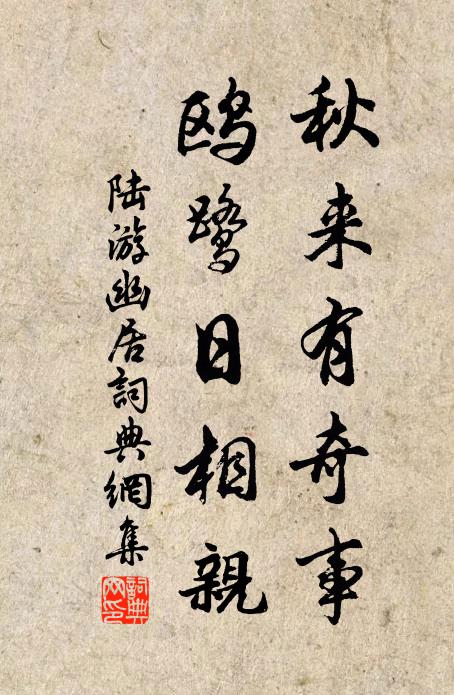 秋来有奇事
鸥鹭日相親
陆游幽居詞典網集
詞典
网印